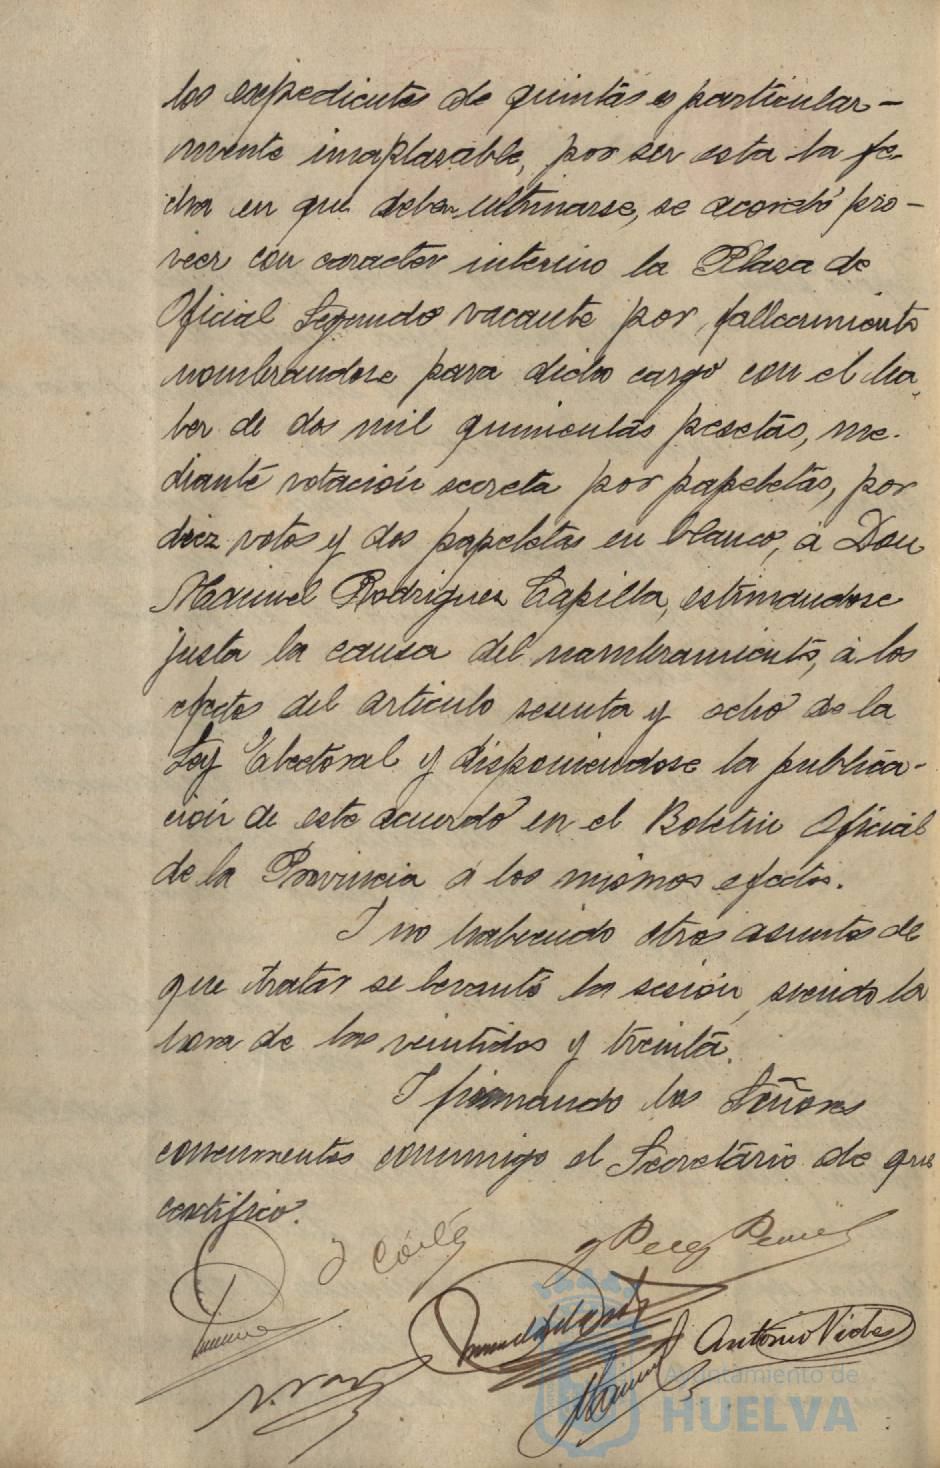 los expedientes de quintas es particular-
mente inaplazable, por ser esta la fe-
cha en que deben ultimarse, se acordó pro-
veer con caracter interino la Plaza de
Oficial Segundo vacante por fallecimiento
nombrandose para dicho cargo con el ha-
ber de dos mil quinientas pesetas, me-
diante votación secreta por papeletas, por
diez votos y dos papeletas en blanco, a Don
Manuel Rodriguez Capilla, estimandose
justa la causa del nombramiento, á los
efectos del articulo sesenta y ocho de la
Ley Electoral y disponiendose la publica-
ción de este acuerdo en el Boletin Oficial
de la Provincia á los mismos efectos.
Y no habiendo otros asuntos de
que tratar se levantó la sesión, siendo la
hora de las veintidos y treinta.
Y firmando los Señores
concurrentes conmigo el Secretário de que
certifico.
Perez
Antonio Vides
Manuel
Ayuntamiento de
HUELVA